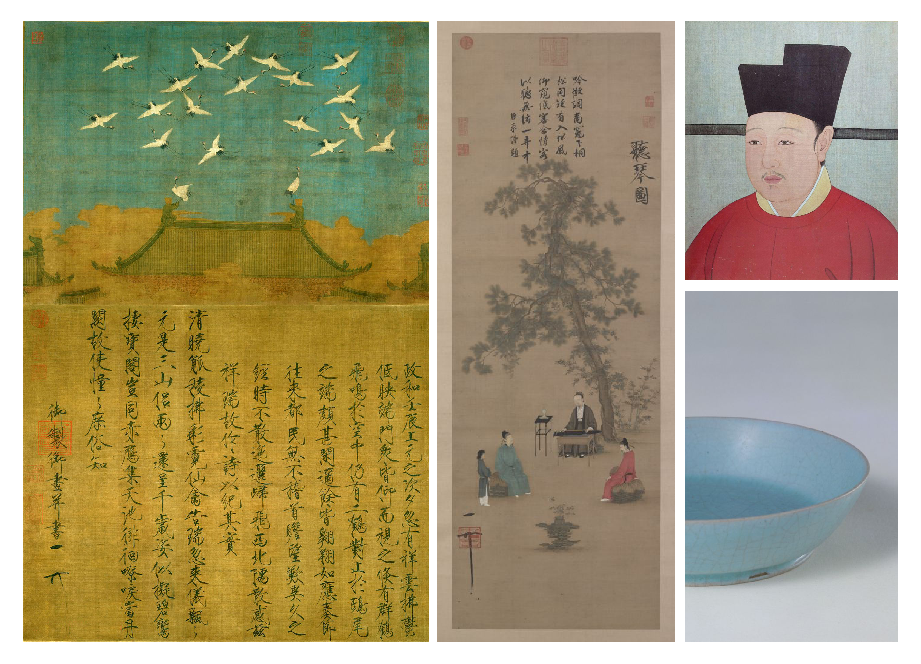 政和壬辰上元之次夕忽有祥雲拂鬱
低映端門衆皆仰而視之倏有群鶴
飛鳴於空中仍有二鶴對止於鴟尾
之端頗甚閒適餘皆翱翔如應奏節
往來都民無不稽首瞻望歎異久之
經時不散迤邐歸飛西北隅散感兹
祥瑞故作詩以紀其實
清曉觚稜拂彩霓仙禽告瑞忽來儀飄〻
元是三山侶兩〻還呈千歲姿似擬碧鸞
棲寶閣豈同赤鴈集天池徘徊嘹唳當丹
闕故使憧〻庶俗知
御製御畫并書
聽琴圖
吟徵調商竈下桐
松間疑有入松風
仰窺低審含情客
似聽無絃一弄中
臣京謹題